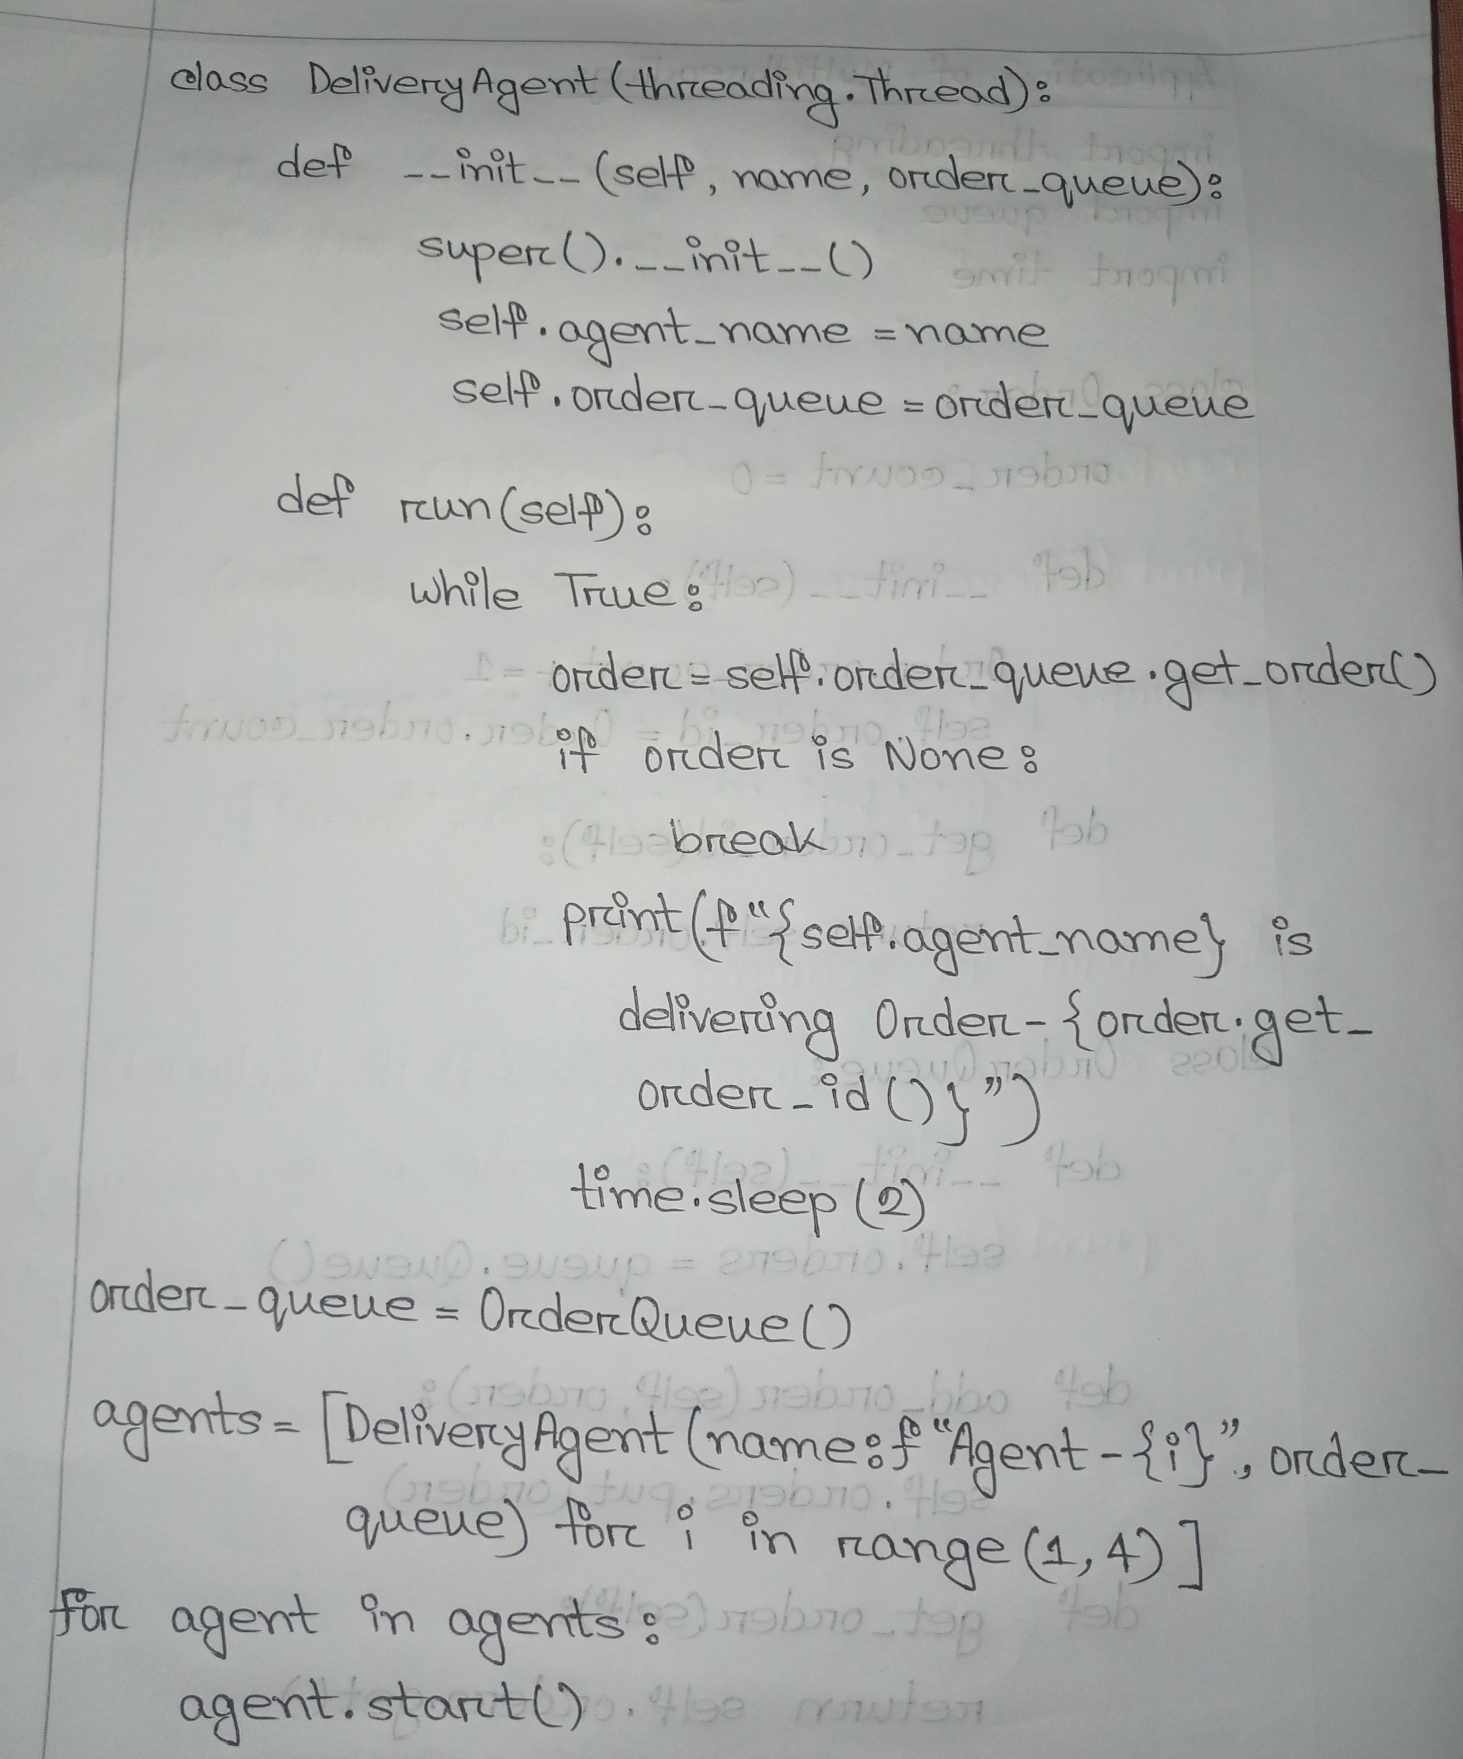 class DeliveryAgent(threading.Thread):
def __init__(self, name, order_queue):
super().__init__()
self.agent_name = name
self.order_queue = order_queue
def run(self):
while True:
order = self.order_queue.get_order()
if order is None:
break
print(f"{self.agent_name} is
delivering Order-{order.get_
order_id()}")
time.sleep(2)
order_queue = OrderQueue()
agents = [DeliveryAgent(name:f"Agent-{i}", order_
queue) for i in range(1,4)]
for agent in agents:
agent.start()